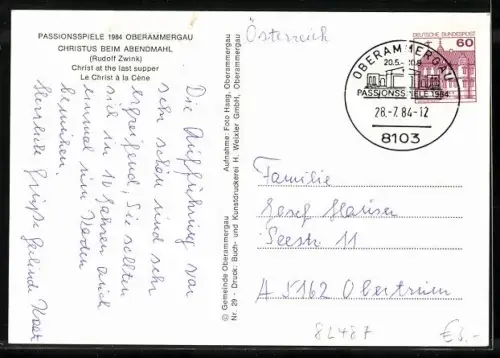 PASSIONSSPIELE 1984 OBERAMMERGAU
CHRISTUS BEIM ABENDMAHL
(Rudolf Zwink)
Christ at the last supper
Le Christ à la Cène
Die Aufführung war
sehr schön und sehr
ergreifend, Sie sollten
sich in 10 Jahren auch
einmal um Karten
bemühen.
Herzliche Grüße
© Gemeinde Oberammergau Aufnahme: Foto Haag, Oberammergau
Nr. 29 - Druck: Buch- und Kunstdruckerei H. Weixler GmbH, Oberammergau
Österreich
OBERAMMERGAU
20.5.- 10.9.
PASSIONSSPIELE 1984
28.-7.84-12
8103
DEUTSCHE BUNDESPOST
60
Familie
Josef Hauser
Seestr 11
A 5162 Obertrum
82487
€3,-